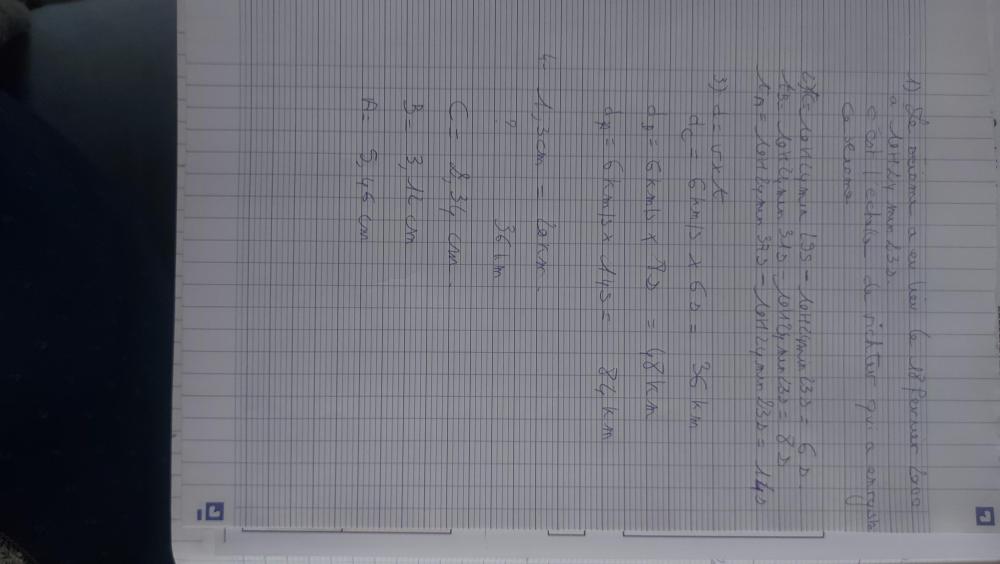 1) Le séisme a eu lieu le 18 Février 2000
a 10H24 min 23s.
c'est l'echelle de richter qui a enregistré
Ce séisme
2) tc = 10H24min 29s - 10H24min 23s = 6s.
tB = 10H24min 31s - 10H24min 23s = 8s
tA = 10H24min 37s - 10H24min 23s = 14s
3) d = v x t
dc = 6km/s x 6s = 36 km
dB = 6km/s x 8s = 48 km
dA = 6km/s x 14s = 84 km
4- 1,3cm = 20km.
? 36 km
C = 2,34 cm.
B = 3,12 cm
A = 5,46 cm